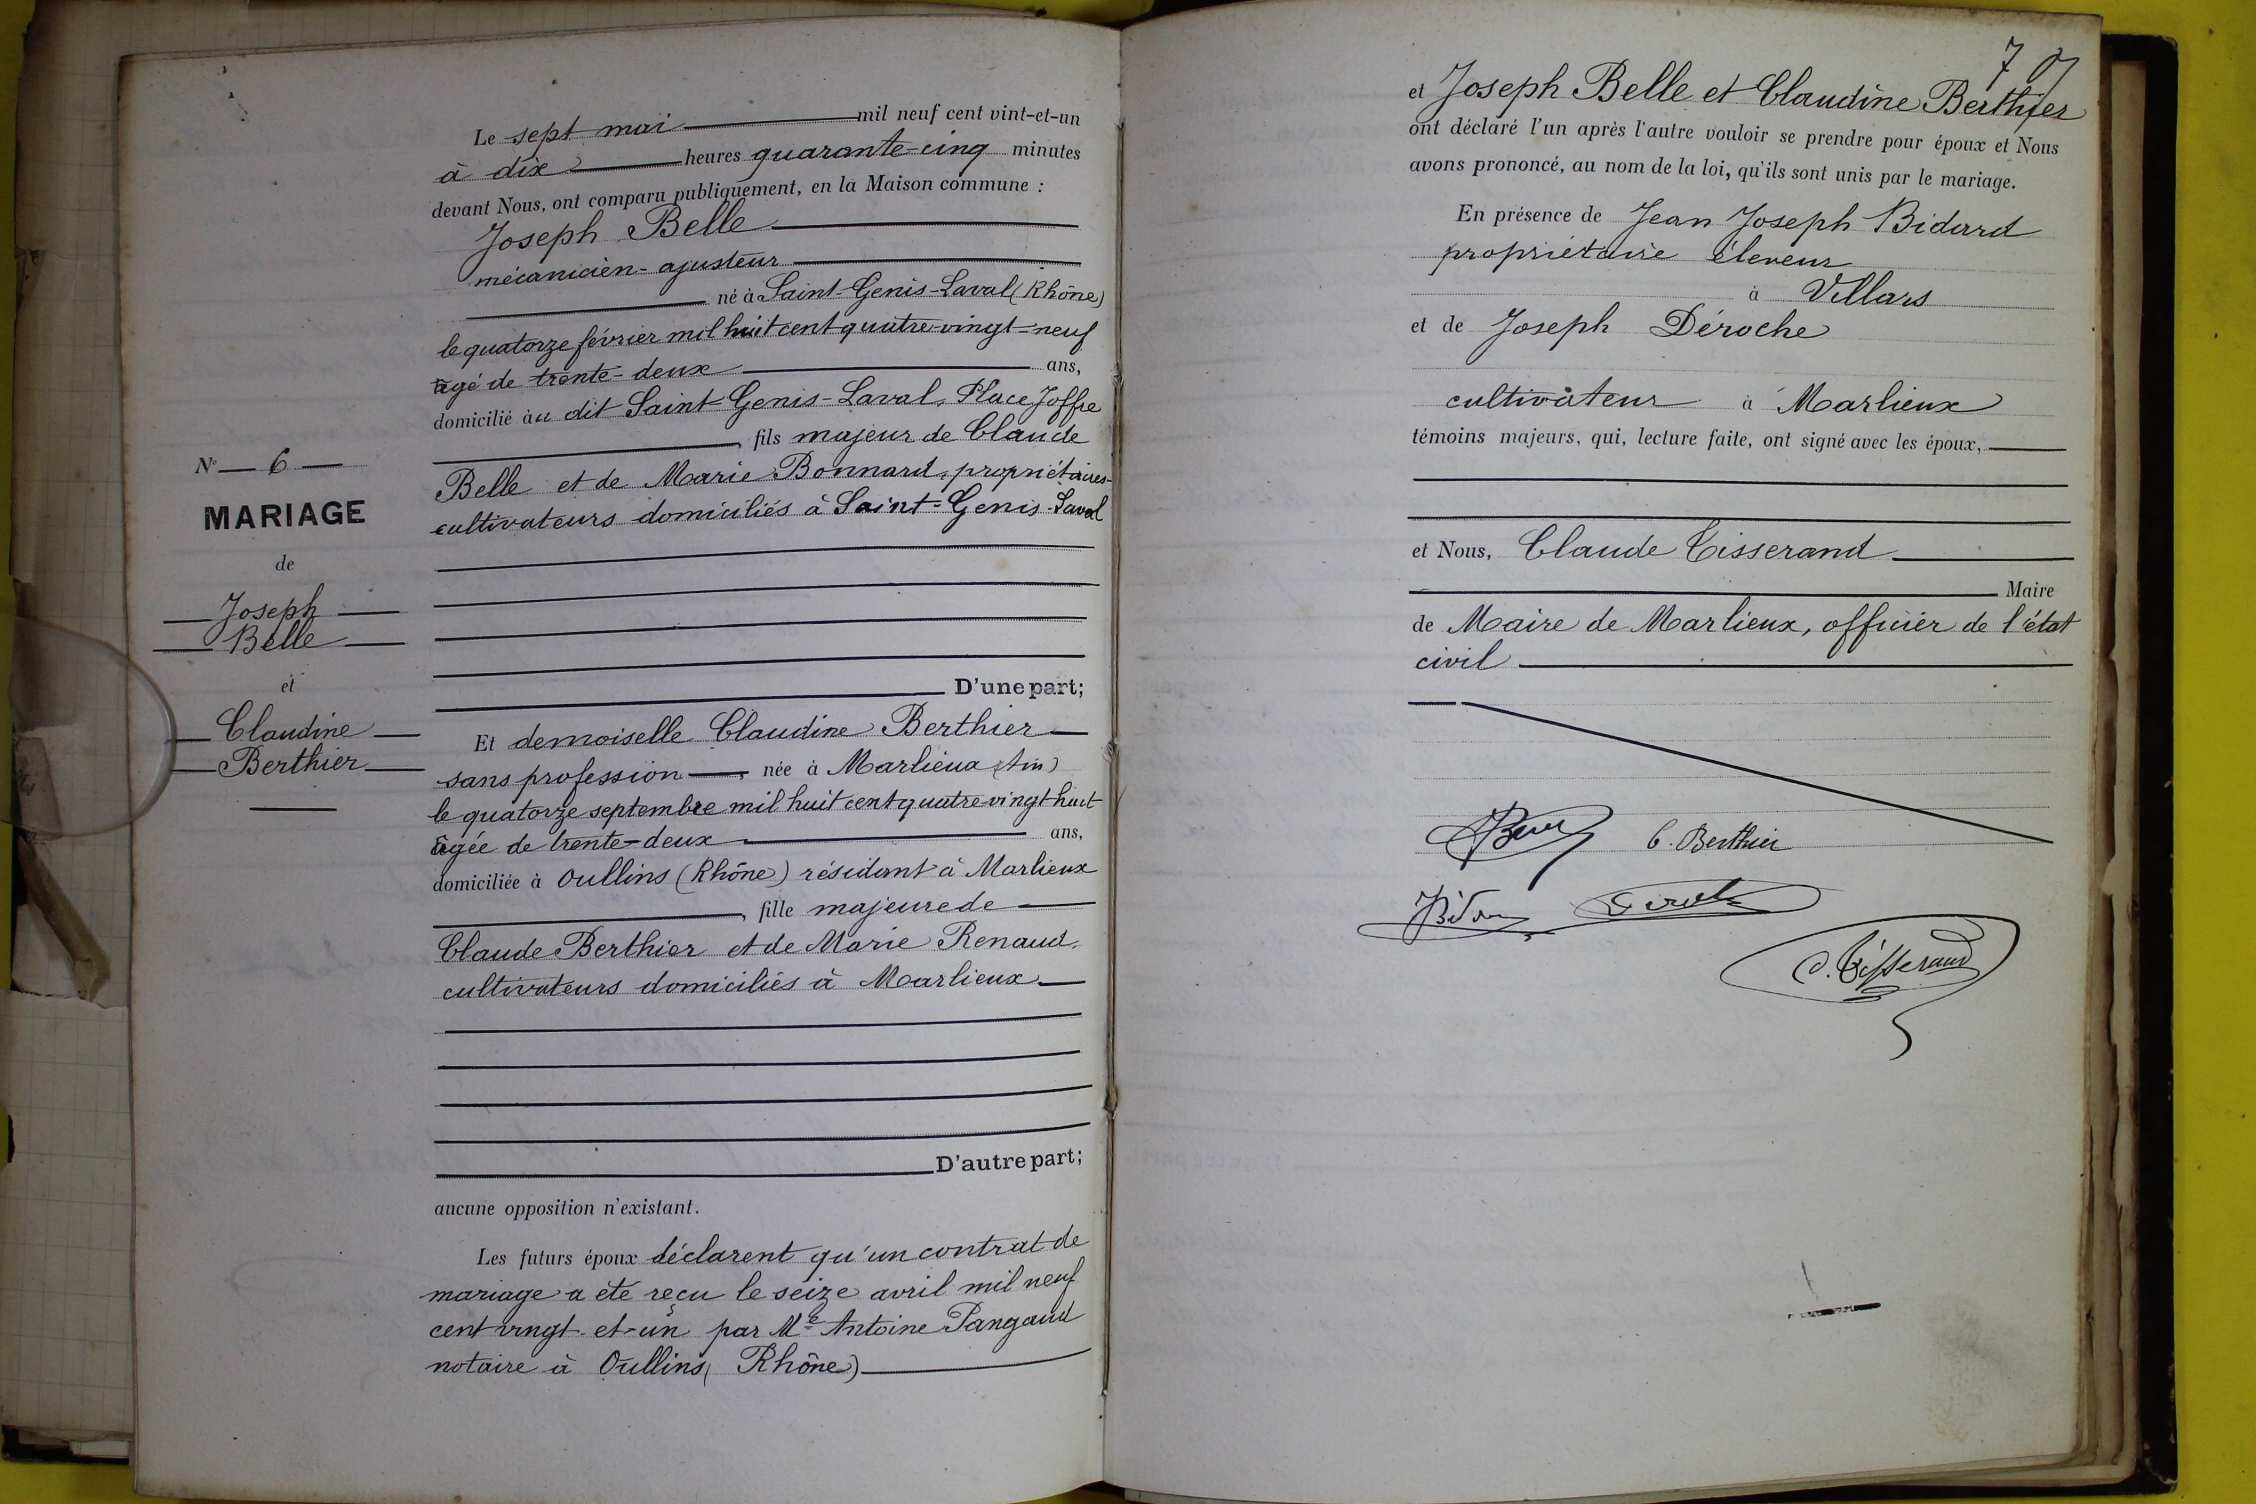 N° 6
MARIAGE
de
Joseph
Belle
et
Claudine
Berthier
Le sept mai mil neuf cent vint-et-un
à dix heures quarante-cinq minutes
devant Nous, ont comparu publiquement, en la Maison commune :
Joseph Belle
mécanicien-ajusteur
né à Saint-Genis-Laval (Rhône)
le quatorze février mil huit cent quatre-vingt-neuf
âgé de trente-deux ans,
domicilié àu dit Saint-Genis-Laval, Place Joffre
, fils majeur de Claude
Belle et de Marie Bonnard, propriétaires-
cultivateurs domiciliés à Saint-Genis-Laval
D'une part;
Et demoiselle Claudine Berthier
sans profession, née à Marlieux (Ain)
le quatorze septembre mil huit cent quatre vingt huit
âgée de trente-deux ans,
domiciliée à Oullins (Rhône) résidant à Marlieux
, fille majeure de
Claude Berthier et de Marie Renaud,
cultivateurs domiciliés à Marlieux
D'autre part;
aucune opposition n'existant.
Les futurs époux déclarent qu'un contrat de
mariage a été reçu le seize avril mil neuf
cent vingt-et-un par Me Antoine Pangaud
notaire à Oullins (Rhône)
7
et Joseph Belle et Claudine Berthier
ont déclaré l'un après l'autre vouloir se prendre pour époux et Nous
avons prononcé, au nom de la loi, qu'ils sont unis par le mariage.
En présence de Jean Joseph Bidard
propriétaire éleveur
à Villars
et de Joseph Déroche
cultivateur à Marlieux
témoins majeurs, qui, lecture faite, ont signé avec les époux,
et Nous, Claude Tisserand
Maire
de Maire de Marlieux, officier de l'état
civil
C. Berthier
C. Tisserand